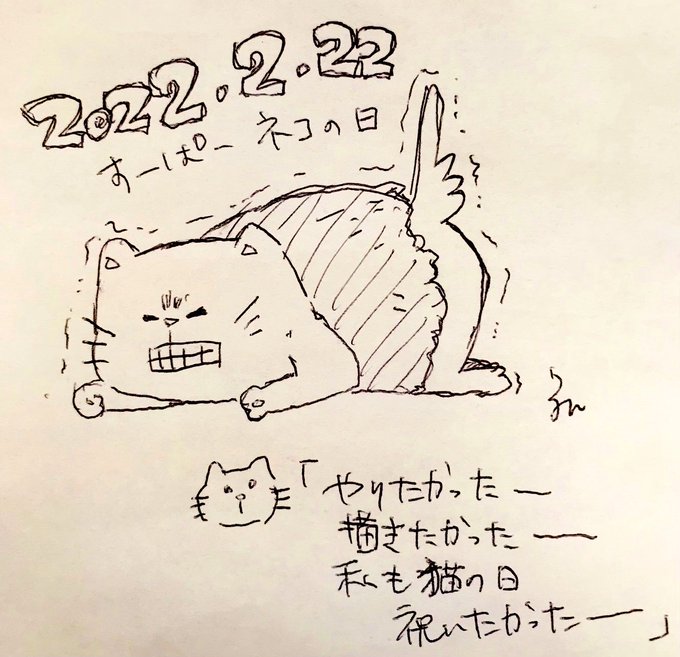 2022.2.22
すーぱー ネコの日
「やりたかったー
描きたかったー
私も猫の日
祝いたかったー」